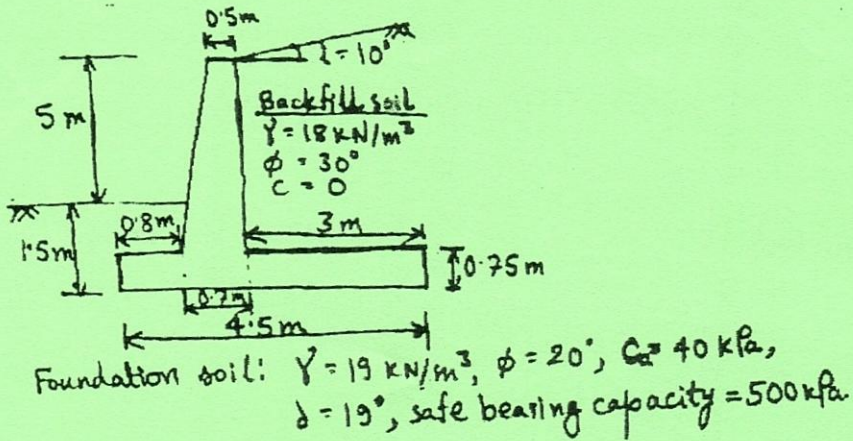 0.5m
i = 10°
5 m
Backfill soil
γ = 18 KN/m³
φ = 30°
C = 0
0.8m
3 m
1.5m
0.75 m
0.7m
4.5m
Foundation soil: γ = 19 KN/m³, φ = 20°, Ca = 40 kPa,
δ = 19°, safe bearing capacity = 500 kPa.